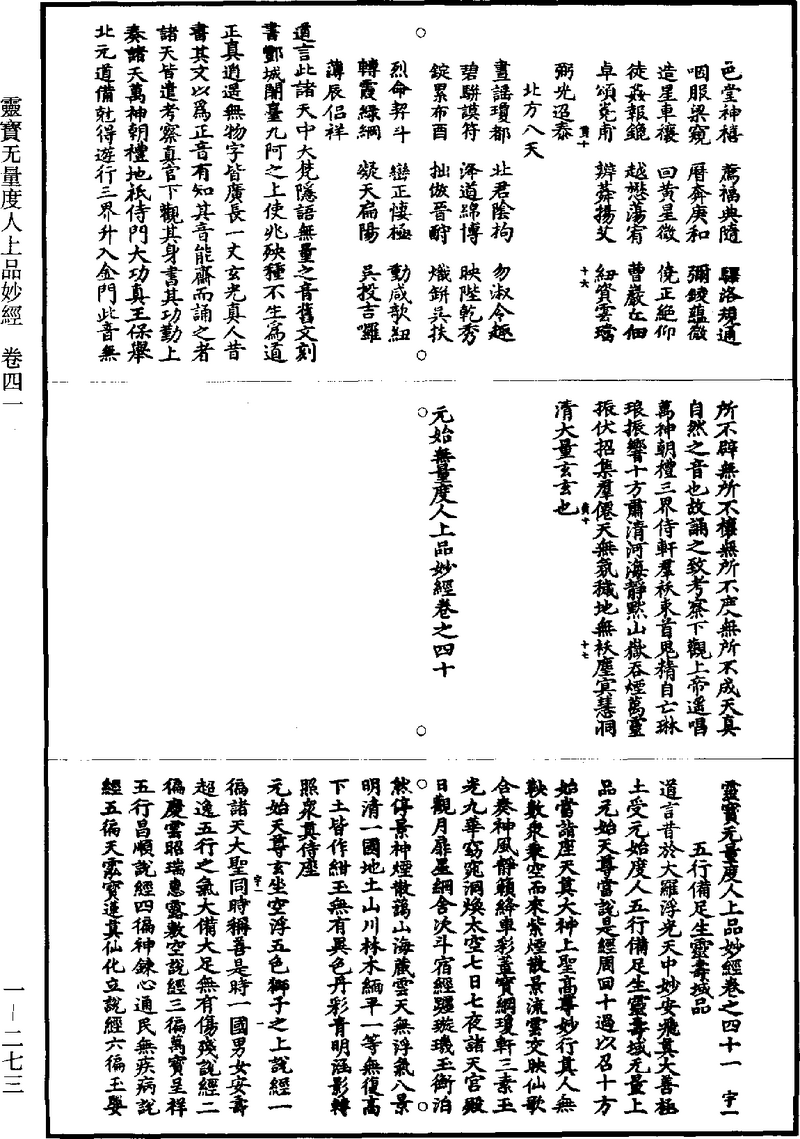 靈寶无量度人上品妙經　卷四一
一－二七三
色堂神禧　薦福典隨　驛洛現通
咽服梁窺　曆奔庚和　彌錂蘊微
造星車禳　回黃呈徵　僥正絕仰
徒姦報鏡　越懋蕩宥　曹巖左佃
卓頌克甫　辨莽揚艾　紐賓雲璫
弼光迢泰
北方八天
晝謠瓊都　北君陰拘　勿淑令趣
碧駢謨符　浲道蹄博　映陛乾秀
錠累布酉　拙傲晉酧　熾鉼吳扶
烈命契斗　巒正懷極　動咸歆紐
轉霞綠綱　凝天扁陽　吳投吉囉
薄辰侶祥
道言此諸天中大梵隱語無量之音舊文刻
書酆城闕臺九阿之上使兆殃種不生為道
正真逍遥無物字皆廣長一丈玄光真人昔
書其文以為正音有知其音能齋而誦之者
諸天皆遣考察真官下觀其身書其功勤上
奏諸天萬神朝禮地祇侍門大功真王保舉
北元道備尅得遊行三界升入金門此音無
所不辟無所不禳無所不度無所不成天真
自然之音也故誦之致考察下觀上帝遥唱
萬神朝禮三界侍軒羣袄束首鬼精自亡琳
琅振響十方肅清河海靜默山嶽吞煙萬靈
振伏招集羣僊天無氛穢地無袄塵冥慧洞
清大量玄玄也
元始無量度人上品妙經卷之四十
靈寶无量度人上品妙經卷之四十一　宇一
五行備足生靈壽域品
道言昔於大羅浮光天中妙安飛真大善極
土受元始度人五行備足生靈壽域无量上
品元始天尊當說是經周回十過以召十方
始當詣座天真大神上聖高尊妙行真人無
鞅數衆乘空而來紫煙散景流雲交映仙歌
合奏神風靜籟絳車彩蓋寶綱瓊軒三素玉
光九華窈窕洞煥太空七日七夜諸天宮殿
日觀月扉星綱舍次斗宿經躔璇璣玉衡泊
然停景神煙散藹山海藏雲天無浮氣八景
明清一國地土山川林木緬平一等無復高
下土皆作紺玉無有異色丹彩青明涵影轉
照衆真侍座
元始天尊玄坐空浮五色獅子之上說經一
徧諸天大聖同時稱善是時一國男女安壽
超逸五行之氣大備大足無有傷殘說經二
徧慶雲昭瑞惠露敷空說經三徧萬寶呈祥
五行昌順說經四徧神鍊心通民無疾病說
經五徧天雨寶蓮真仙化立說經六徧玉嬰